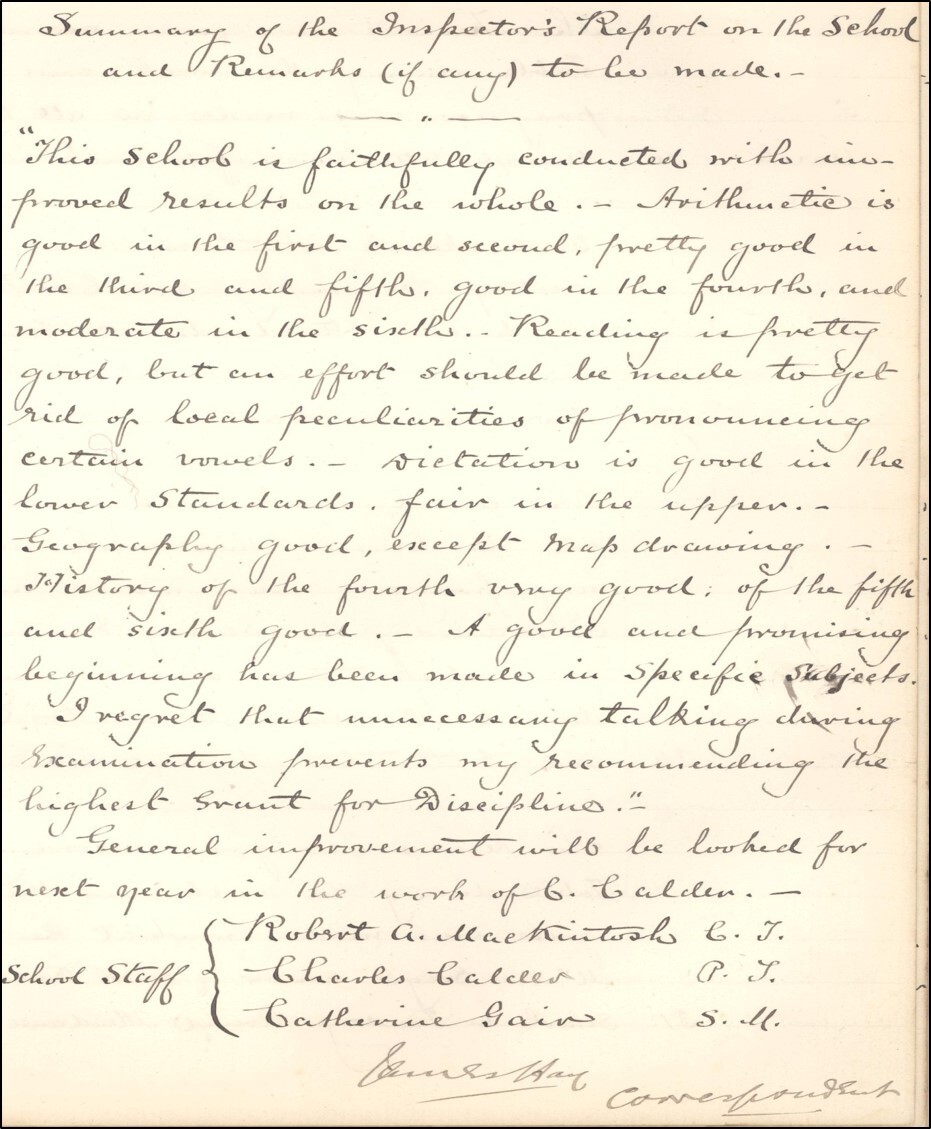 Summary of the Inspector's Report on the School
and Remarks (if any) to be made. –
— " —
"This School is faithfully conducted with im-
proved results on the whole. – Arithmetic is
good in the first and second, pretty good in
the third and fifth, good in the fourth, and
moderate in the sixth. – Reading is pretty
good, but an effort should be made to get
rid of local peculiarities of pronouncing
certain vowels. – Dictation is good in the
lower Standards, fair in the upper. –
Geography good, except Map drawing. –
History of the fourth very good; of the fifth
and sixth good. – A good and promising
beginning has been made in Specific Subjects.
I regret that unnecessary talking during
Examination prevents my recommending the
highest Grant for Discipline." –
General improvement will be looked for
next year in the work of C. Calder. –
School Staff { Robert A. Mackintosh C. T.
Charles Calder P. T.
Catherine Gair S. M.
James Hay
Correspondent